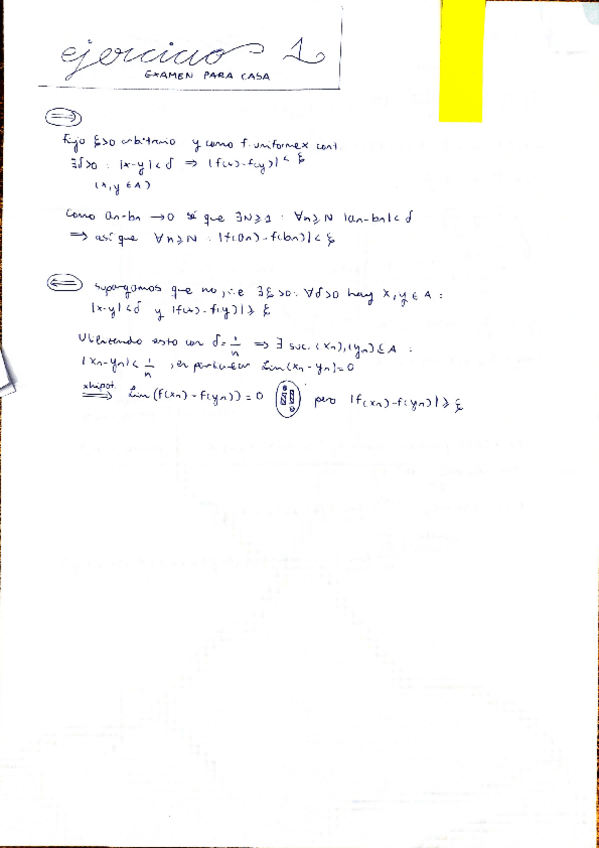 ejercicio 1
EXAMEN PARA CASA
⇒
Fijo ξ>0 arbitrario y como f. uniformex cont.
∃δ>0 : |x-y|<δ ⇒ |f(x)-f(y)|<ξ
(x,y ∈ A)
Como an-bn → 0 sí que ∃N≥1 : ∀n≥N |an-bn|<δ
⇒ así que ∀n≥N : |f(an)-f(bn)|<ξ
⇐ supongamos que no, i.e ∃ξ>0: ∀δ>0 hay x,y ∈ A :
|x-y|<δ y |f(x)-f(y)|≥ξ
esto con δ=1/n ⇒ ∃ suc. (xn),(yn)⊆A :
|xn-yn|<1/n, en particular Lim(xn-yn)=0
xhipot. ⇒ Lim(f(xn)-f(yn))=0 pero |f(xn)-f(yn)|≥ξ